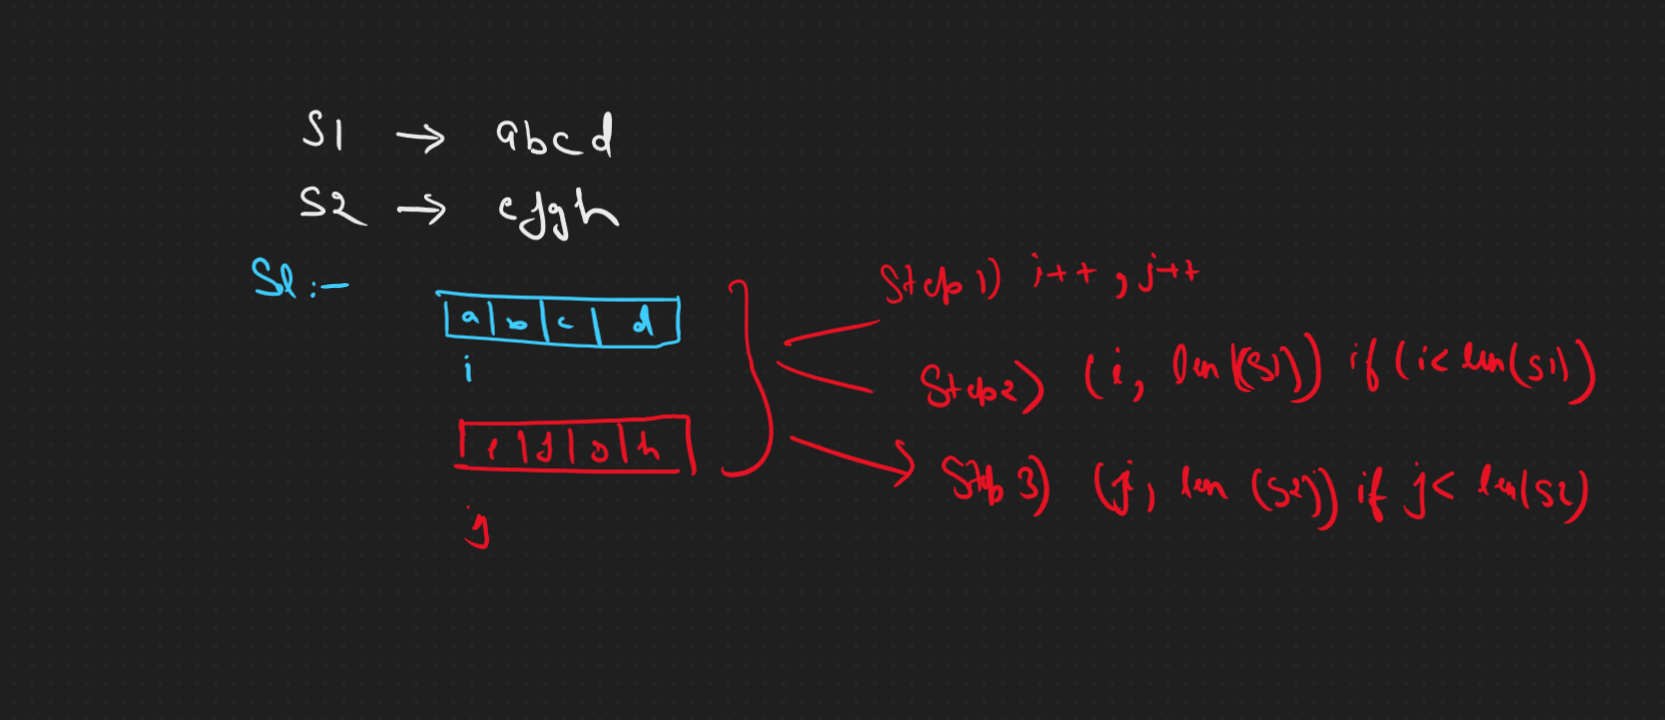 S1 → abcd
S2 → efgh
Sl :-
a b c d
i
e f g h
j
Step 1) i++ , j++
Step 2) (i, len(S1)) if (i< len(S1))
Step 3) (j, len (S2)) if j< len(S2)